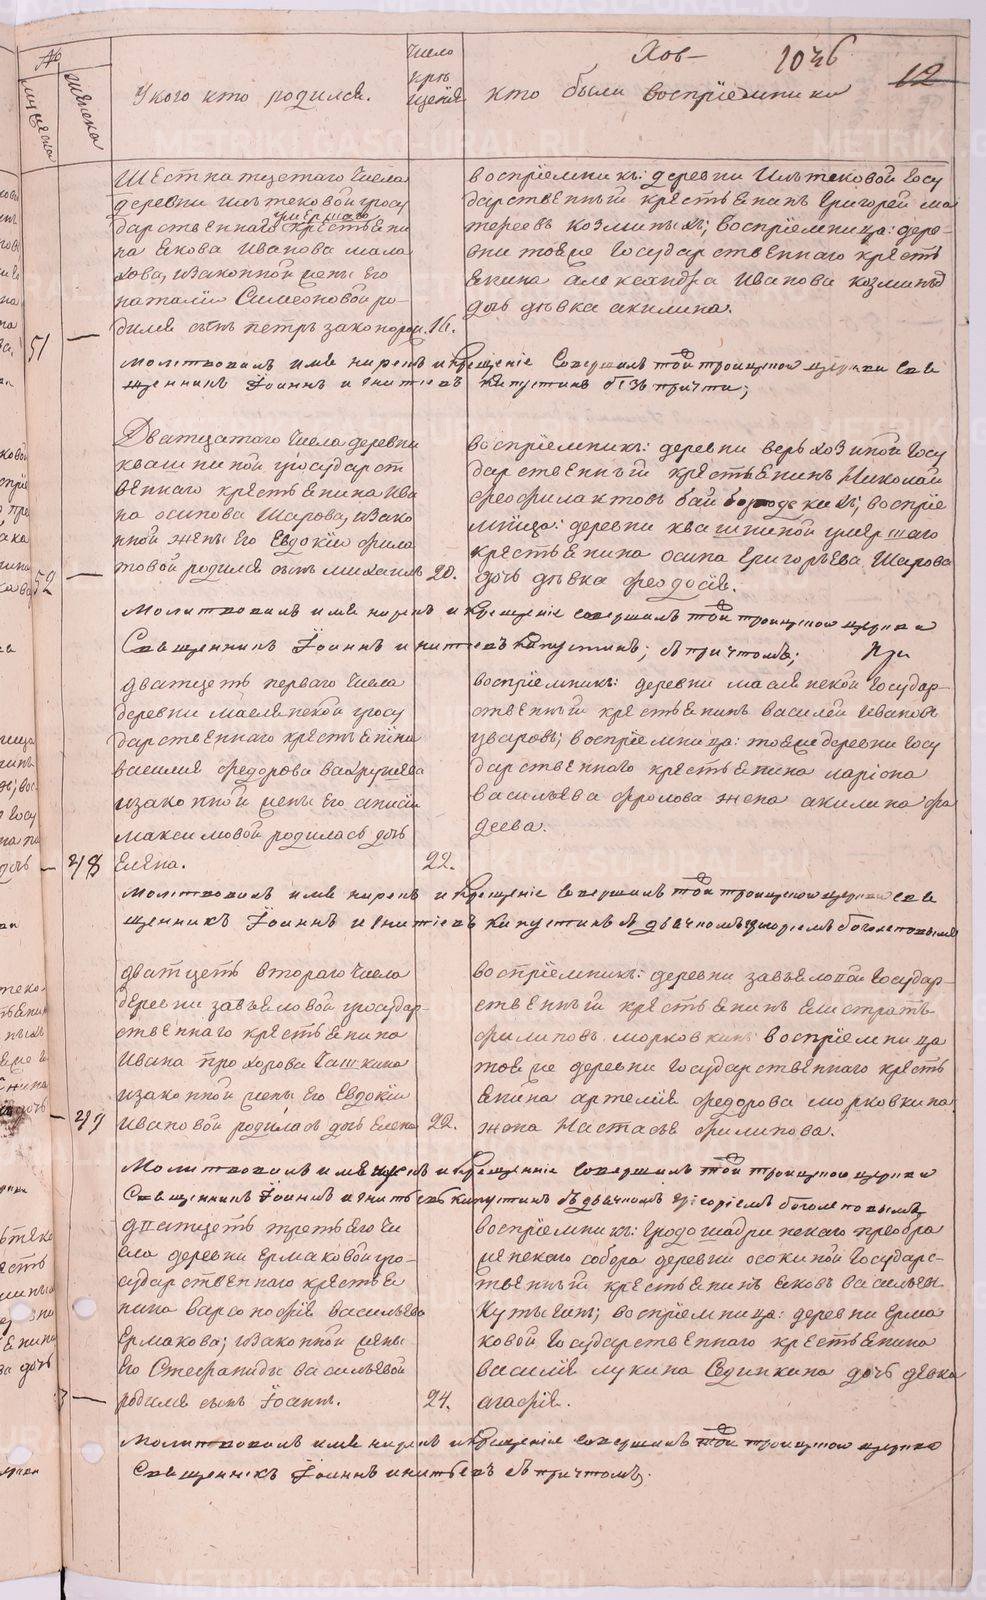 №
мужеска
женска
У кого кто родился.
Число
кре
щения
Хов–
1036
12
Кто были восприемники
METRIKI.GASO-URAL.RU
шестнатцетаго числа
деревни
государственнаго умершаго крестьяни
на Якова Иванова мала
хова, изаконной жены его
наталии Симеоновой ро–
дился сынъ петръ законорож. 16.
51
восприемникъ: деревни Госу
дарственный крестьянинъ Григорей ма
тфеевъ козминыхъ; восприемница: дере–
вни тояже Государственнаго кресть
янина александра Иванова козминыхъ
дочь девка акилина.
молитвовалъ имя нарекъ и крещение совершалъ той троицкой церкви свя
щенникъ Iоаннъ игнатьевъ Капустинъ безъ причта;
Дватцатаго числа деревни
квашниной государст
веннаго крестьянина ива
на осипова Шарова, изако
нной жены его Евдокии фила
товой родился сынъ михаилъ 20.
52
восприемникъ: деревни верьховиной Госу
дарственный крестьянинъ Николай
феофилактовъ ; восприе
мница: деревни квашниной умершаго
крестьянина осипа григорьева Шарова
дочь девка феодосия.
молитвовалъ имя нарекъ и крещение совершалъ той троицкой церкви
Священникъ Iоаннъ игнатьевъ Капустинъ; съ причтомъ; При
дватцеть перваго числа
деревни маслянской госу
дарственнаго крестьянина
василия федорова вахрушева
изаконной жены его анисии
максимовой родилась дочь
Елена. 22.
48
восприемникъ: деревни маслянской Государ–
ственный крестьянинъ василей Ивановъ
уваровъ; восприемница: тояже деревни Госу
дарственнаго крестьянина лариона
васильева фролова жена акилина фа
деева.
молитвовалъ имя нарекъ и крещение совершалъ той троицкой церкви свя
щенникъ Iоаннъ игнатьевъ Капустинъ съ дьячкомъ григориемъ боголеповымъ
дватцеть втораго числа
деревни завьяловой государ–
ственнаго крестьянина
Ивана прохорова Чашкина
изаконной жены его Евдокии
Ивановой родилась дочь Елена 22.
49
восприемникъ: деревни завьяловой Государ–
ственный крестьянинъ Елистратъ
филиповъ морковкинъ восприемница
тояже деревни Государственнаго кресть
янина артемия федорова морковкина
жена Настасья филипова.
Молитвовалъ имя нарекъ и крещение совершалъ той троицкой церкви
Священникъ Iоаннъ игнатьевъ капустинъ съ дьячкомъ григориемъ боголеповымъ
дватцеть третьяго чи
сла деревни Ермаковой го–
сударственнаго крестья
нина варсонофия васильева
Ермакова; изаконной жены
Его Стефаниды васильевой
родился сынъ Iоаннъ. 24.
восприемникъ: Града Шадринскаго преобра
женскаго собора деревни осокиной Государс–
твенный крестьянинъ яковъ васильевъ
Кутыгинъ; восприемница: деревни Ерма
ковой Государственнаго крестьянина
василия лукина Сединкина дочь девка
агафия.
Молитвовалъ имя нарекъ и крещение совершалъ той троицкой церкви
Священникъ Iоаннъ игнатьевъ съ причтомъ.
METRIKI.GASO-URAL.RU